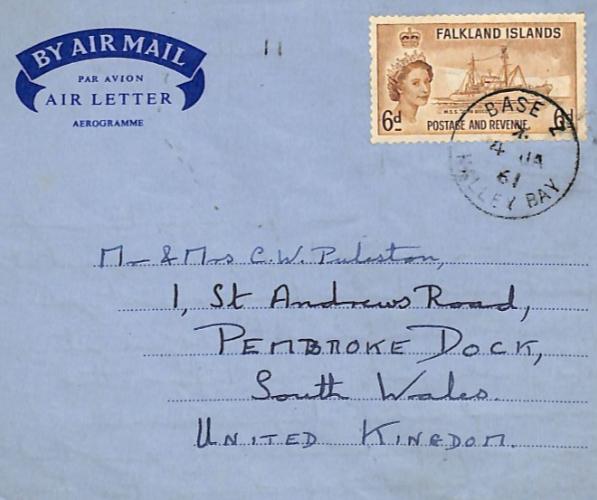 BY AIR MAIL
PAR AVION
AIR LETTER
AEROGRAMME
11
FALKLAND ISLANDS
6d 6d
POSTAGE AND REVENUE
BASE Z
4 JA
61
HALLEY BAY
Mr & Mrs C.W. Puleston,
1, St Andrews Road,
PEMBROKE DOCK,
South Wales.
UNITED KINGDOM.